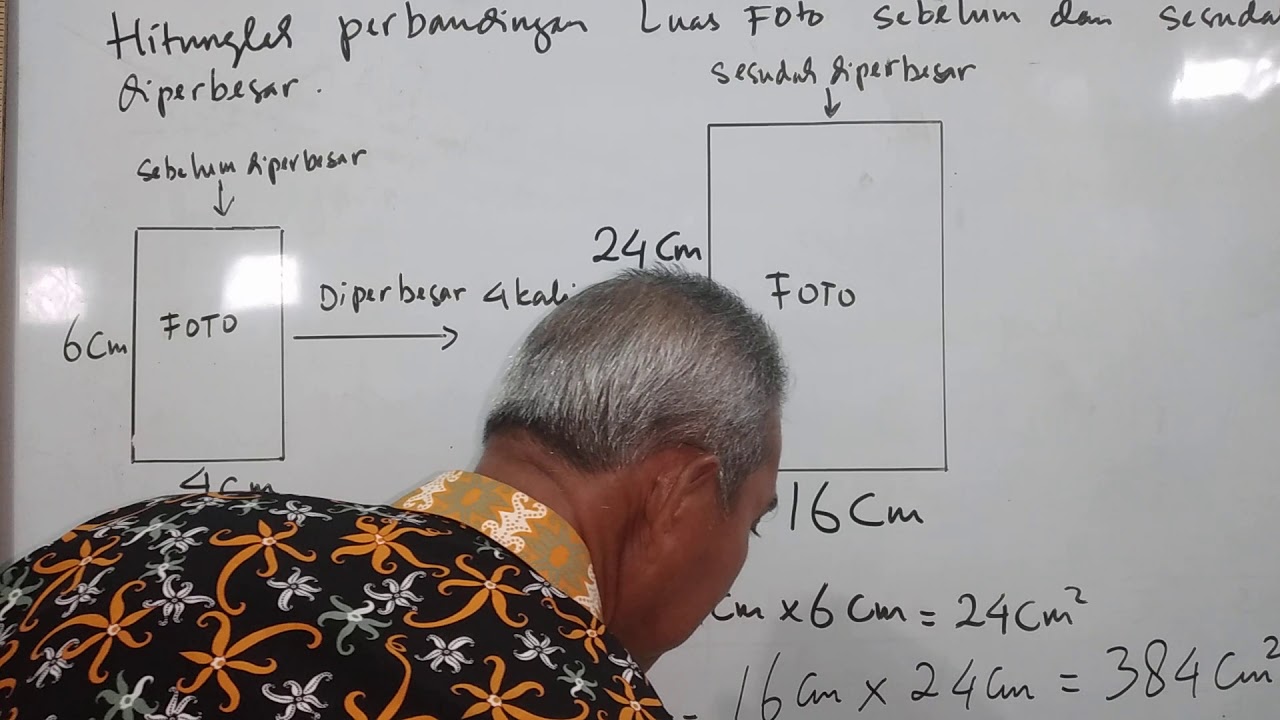 Hitunglah perbandingan Luas Foto sebelum dan sesuda
diperbesar.
sesudah diperbesar
sebelum diperbesar
24 Cm
FOTO
Diperbesar 4 kali
FOTO
6 Cm
4 cm
16 Cm
cm x 6 Cm = 24 Cm²
= 16 Cm x 24 Cm = 384 Cm²